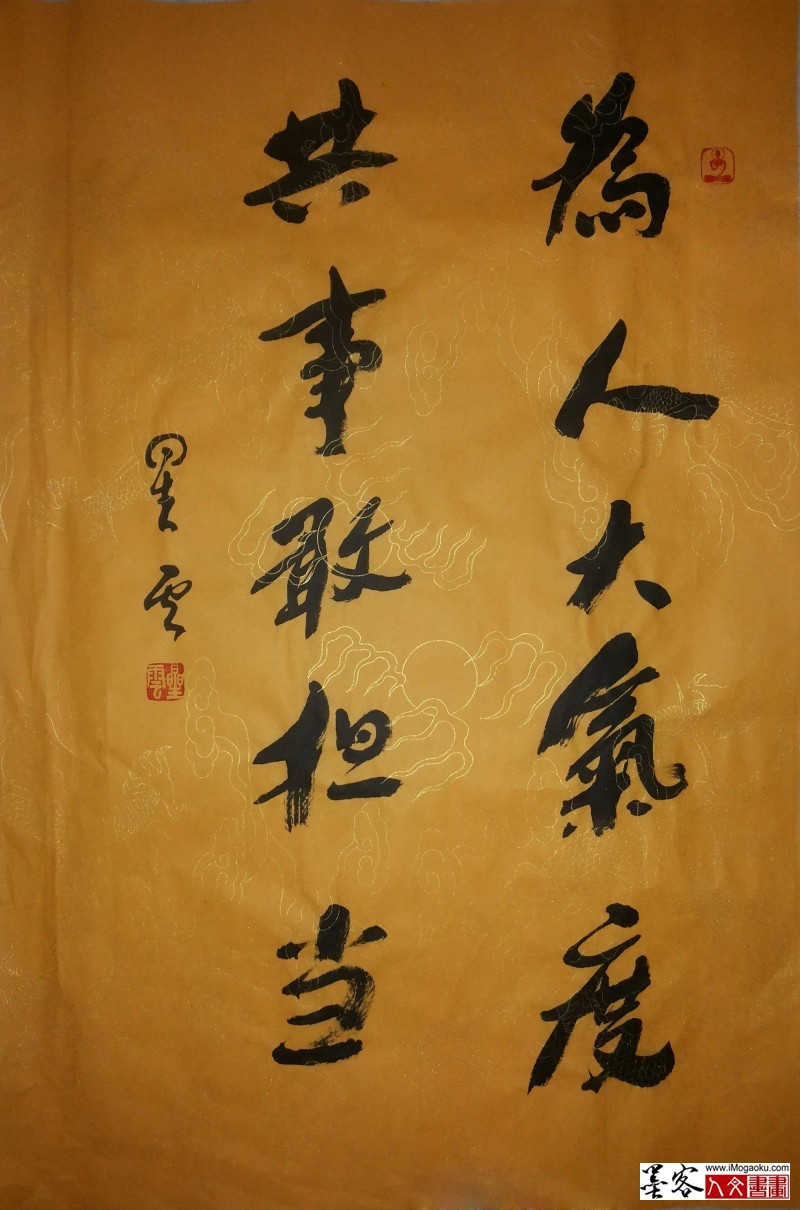 為人大氣度
共事敢担当
星云
星雲
墨客
www.iMogaoku.com
人文書畫